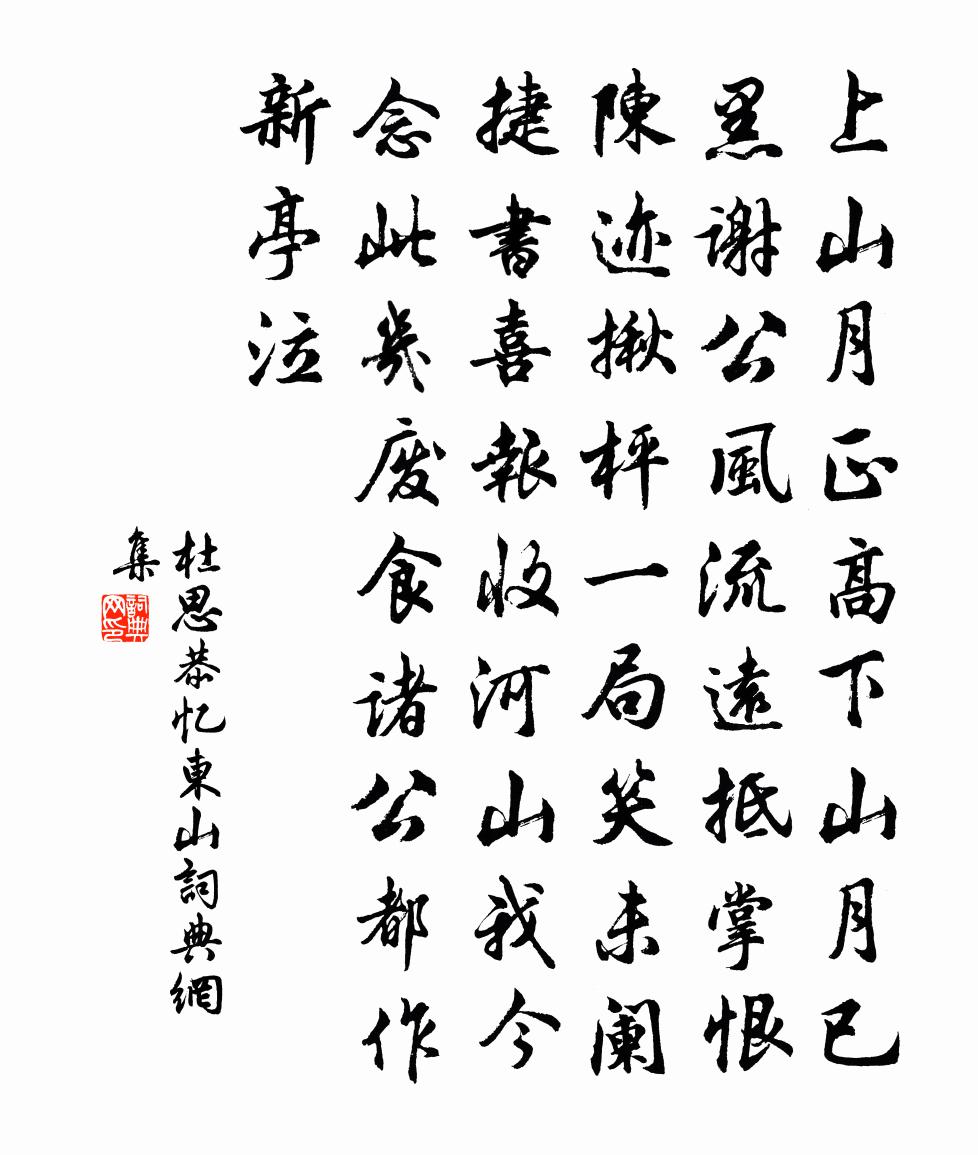 上山月正高下山月已
黑謝公風流遠抵掌恨
陳迹揪枰一局笑未闌
捷書喜報收河山我今
念此幾廢食諸公都作
新亭泣
杜思恭忆東山詞典網
集
詞典网印